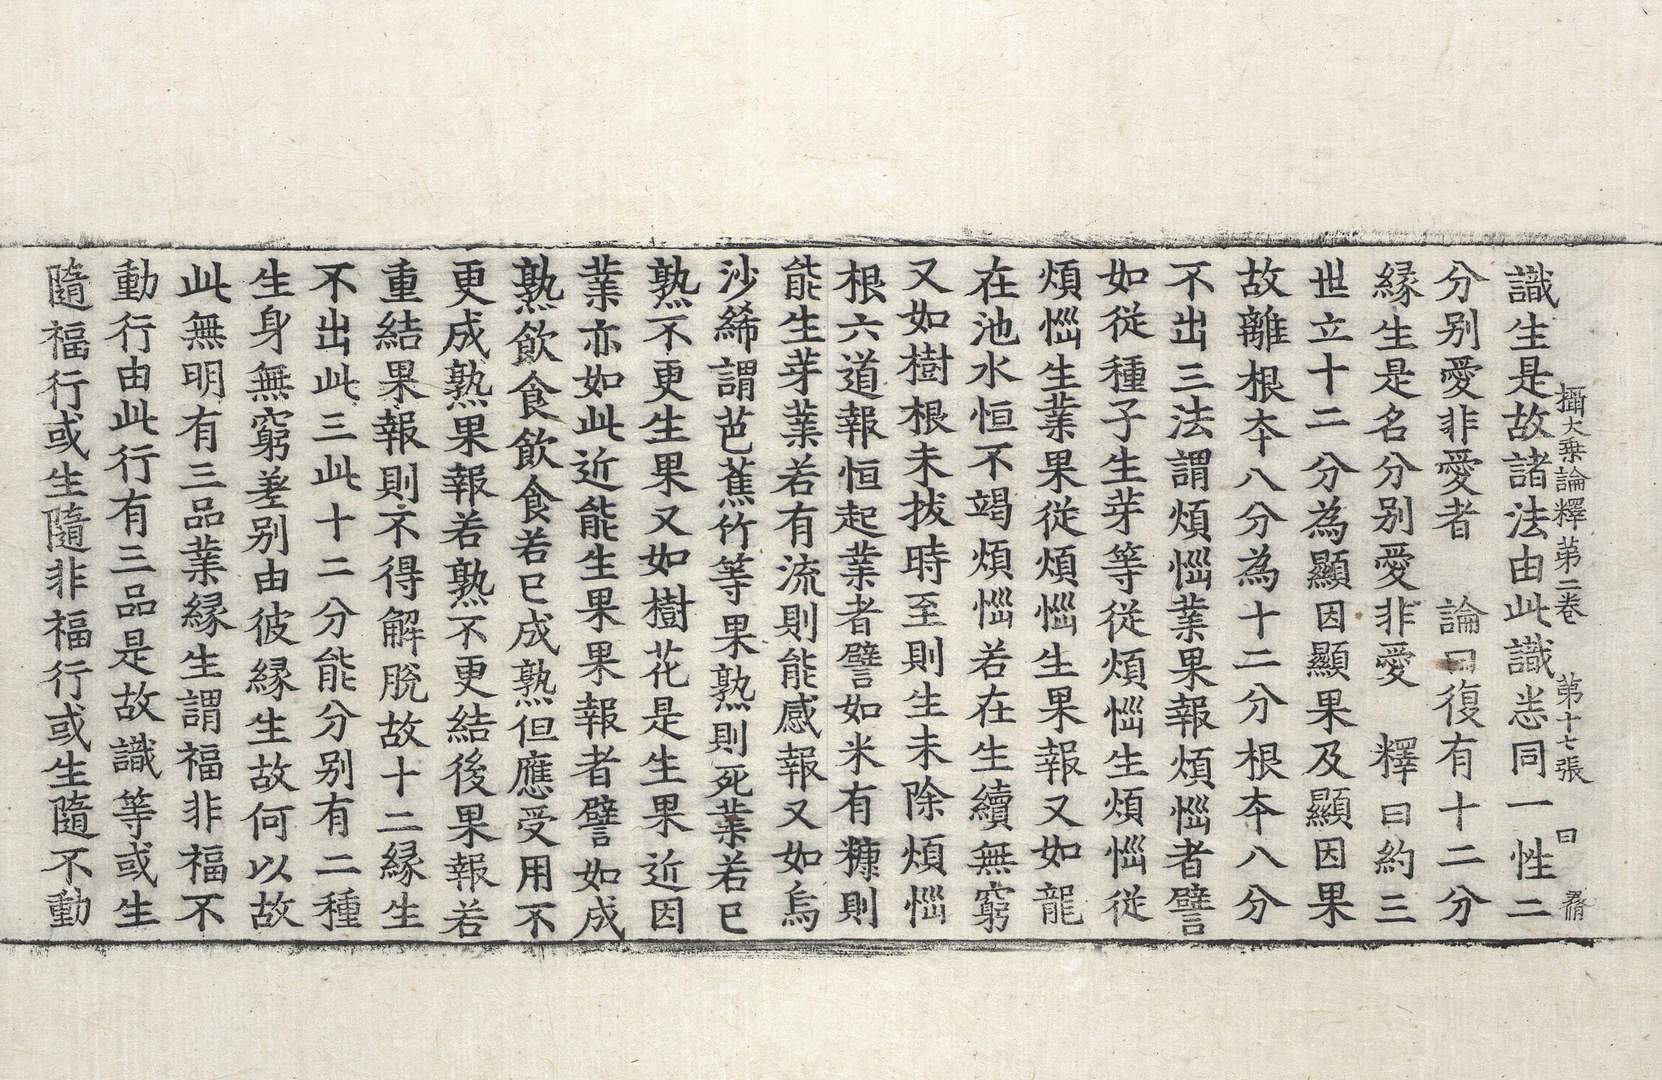 攝大乗論釋第二卷 第十七張 曰
識生是故諸法由此識恙同一性二
分别愛非愛者 論曰復有十二分
縁生是名分别愛非愛 釋曰約三
世立十二分為顯因顯果及顯因果
故離根夲八分為十二分根夲八分
不出三法謂煩惱業果報煩惱者譬
如從種子生芽等從煩惱生煩惱從
煩惱生業果從煩惱生果報又如龍
在池水恒不竭煩惱若在生續無窮
又如樹根未拔時至則生未除煩惱
根六道報恒起業者譬如米有糠則
能生芽業若有流則能感報又如烏
沙絺謂芭蕉竹等果熟則死業若已
熟不更生果又如樹花是生果近因
業亦如此近能生果果報者譬如成
熟飲食飲食若已成熟但應受用不
更成熟果報若熟不更結後果報若
重結果報則不得解脫故十二縁生
不出此三此十二分能分别有二種
生身無窮差别由彼縁生故何以故
此無明有三品業縁生謂福非福不
動行由此行有三品是故識等或生
隨福行或生隨非福行或生隨不動